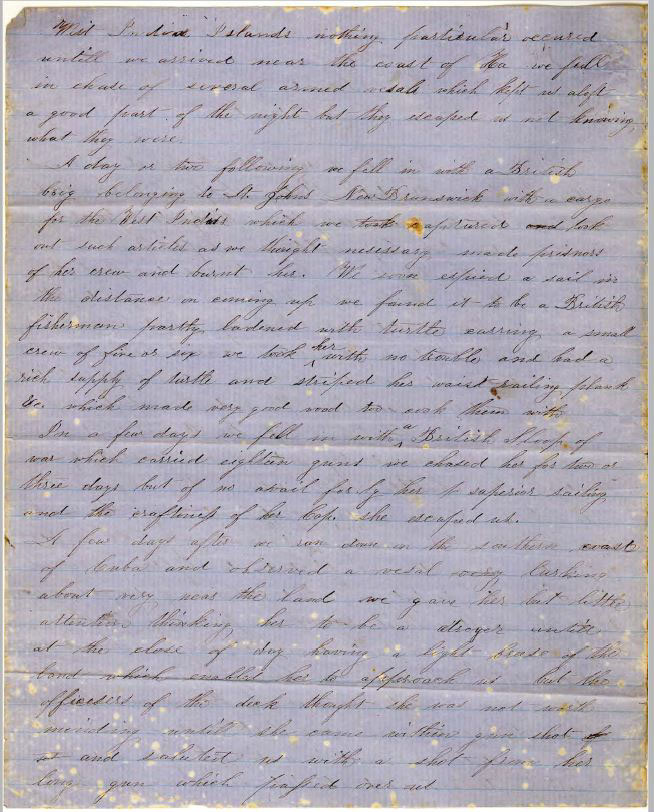 West Indias Islands nothing particular occured
untill we arrived near the coast of Ha we fell
in chase of several armed vesals which kept us aloft
a good part of the night but they escaped us not knowing
what they were.
A day or two following we fell in with a British
brig belonging to St. Johns New Brunswick with a cargo
for the West Indias which we took captured and took
out such articles as we thought nesissary made prisnors
of her crew and burnt her. We soon espied a sail in
the distance on coming up we found it to be a British
fisherman partly ladened with turtle carring a small
crew of five or six we took her with no trouble and had a
rich supply of turtle and striped her waist railing plank
&c. which made very good wood too cook them with
In a few days we fell in with a British Sloop of
war which carried eighteen guns we chased her for two or
three days but of no avail for by her superior sailing
and the craftiness of her Cap. she escaped us.
A few days after we ran down in the southern coast
of Cuba and observed a vesal lurking
about very near the land we gave her but little
attention thinking her to be a untill
at the close of day having a light brase of the
land which enabled her to approach us but the
officesers of the deck thought she was not worth
minding untill she came within gun shot of
us and saluted us with a shot from her
long gun which passed over us